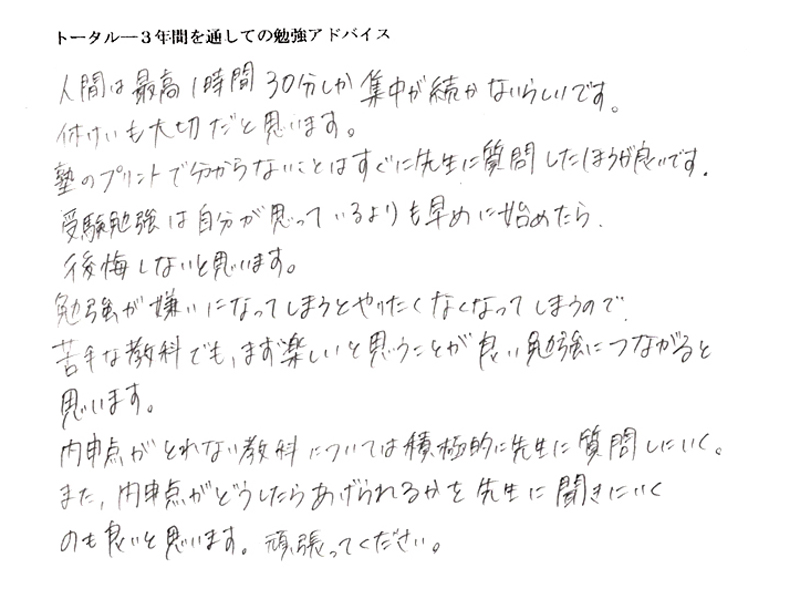 トータル―３年間を通しての勉強アドバイス
人間は最高1時間30分しか集中が続かないらしいです。
休けいも大切だと思います。
塾のプリントで分からないことはすぐに先生に質問したほうが良いです。
受験勉強は自分が思っているよりも早めに始めたら、
後悔しないと思います。
勉強が嫌いになってしまうとやりたくなくなってしまうので、
苦手な教科でも、まず楽しいと思うことが良い勉強につながると
思います。
内申点がとれない教科については積極的に先生に質問しにいく。
また、内申点がどうしたらあげられるかを先生に聞きにいく
のも良いと思います。頑張ってください。